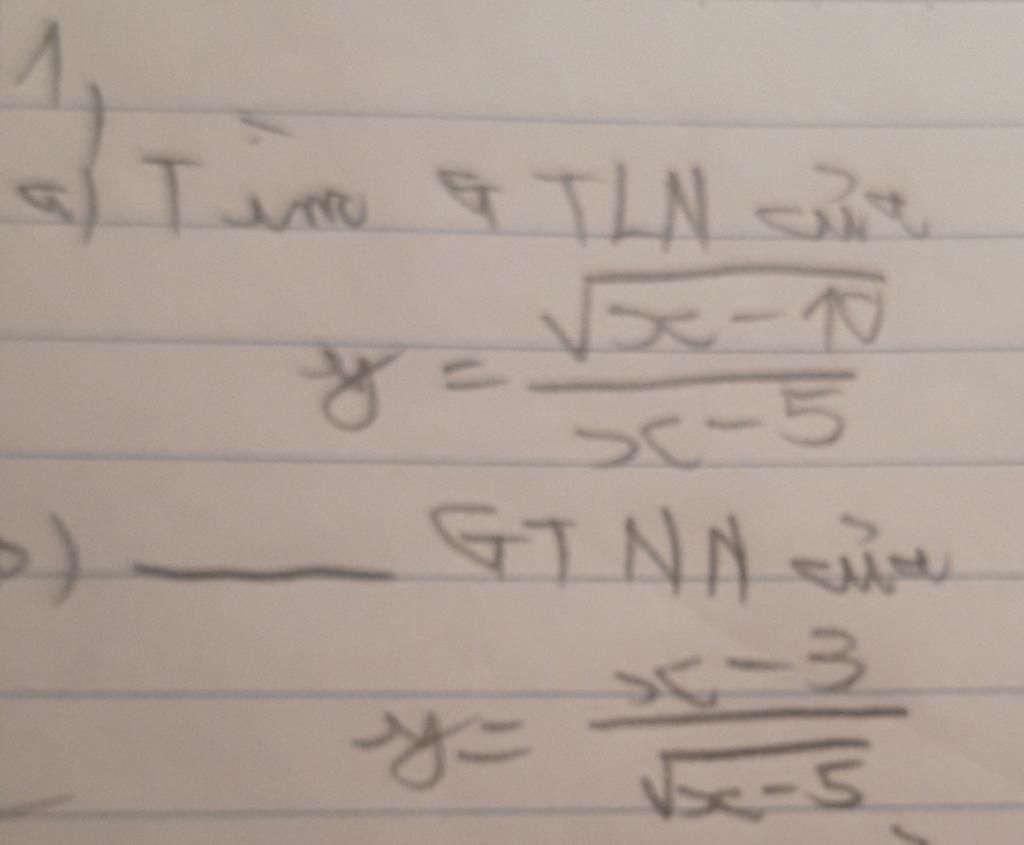 1
a) Tìm GTLN của
y = √(x-10) / (x-5)
b) ——— GTNN của
y = (x-3) / √(x-5)